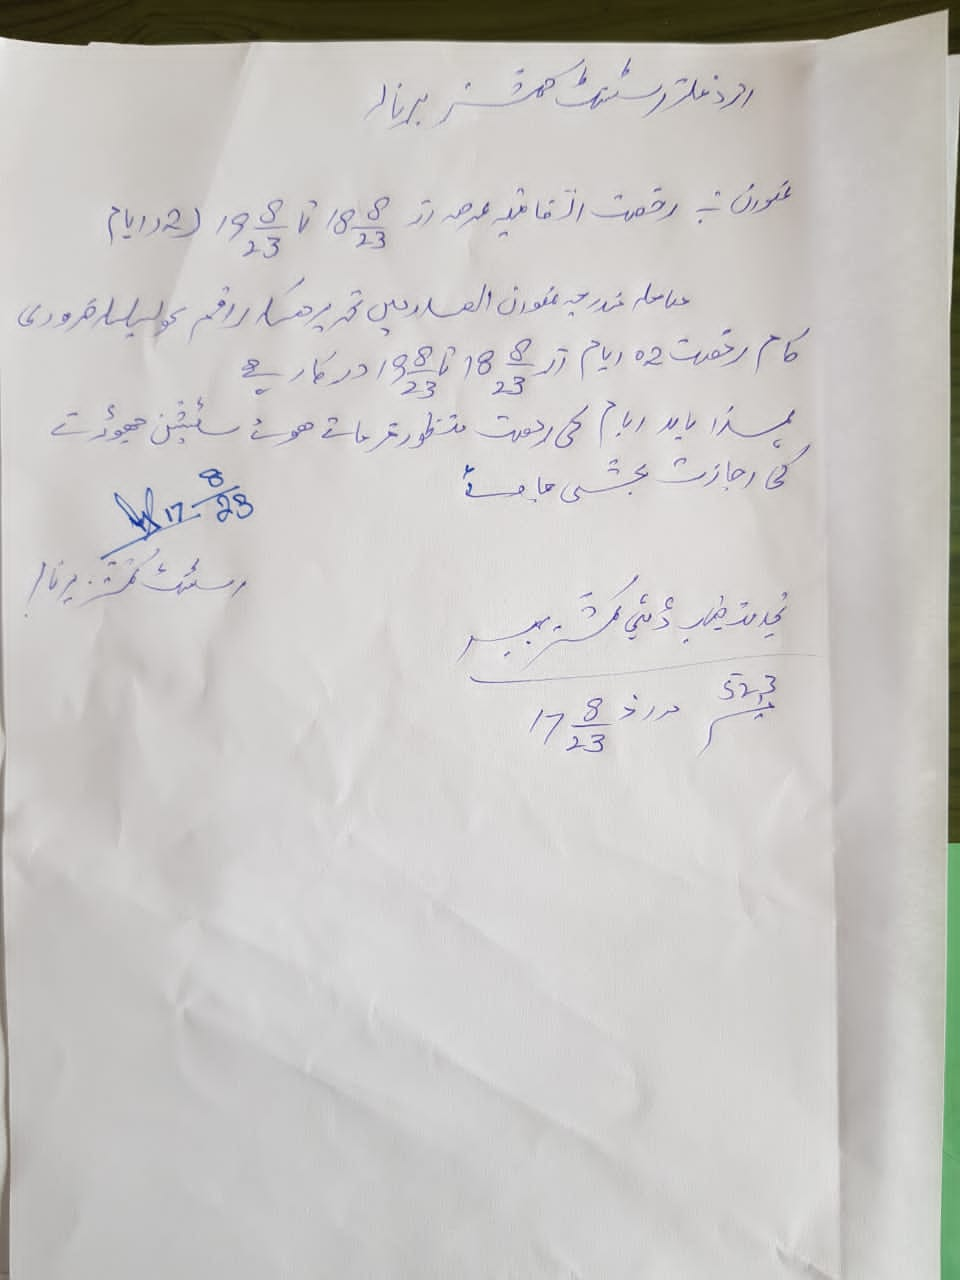 از دفتر اسسٹنٹ کمشنر برنالہ
عنوان :۔ رخصت اتفاقیہ عرصہ از 18 8/23 تا 19 8/23 (2 ایام)
معاملہ مندرجہ عنوان الصدر میں تحریر ہیکہ راقم کو بسلسلہ ضروری
کام رخصت 02 ایام از 18 8/23 تا 19 8/23 درکار ہے
لہذا ایام کی رخصت منظور فرماتے ہوئے سٹیشن چھوڑنے
کی اجازت بخشی جاوے
17 8/23
اسسٹنٹ کمشنر برنالہ
بخدمت جناب ڈپٹی کمشنر بھمبر
523 مورخہ 17 8/23